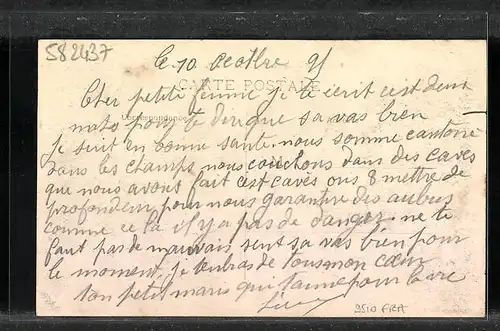 582437
le 10 Octobre 95
CARTE POSTALE
Correspondance
Cher petite femme je te écrit cest deux
mots pour te dire que sa vas bien
je suit en bonne santé nous somme cantoné
dans les champs nous couchons dans des caves
que nous avous fait cest caves ons 8 mettre de
profondeur pour nous garantire des aubus
comme ce la il y a pas de danger ne te
faut pas de mauvais sent sa vas bien pour
le moment je tenbras de tous mon cœur
ton petit maris qui t'aime pour la vie
9510 FRA